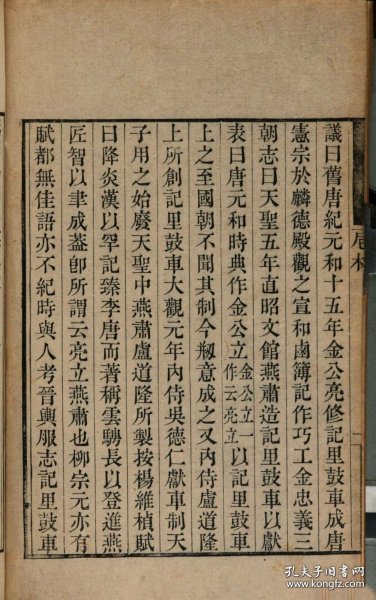 議曰舊唐紀元和十五年金公亮修記里鼓車成唐
憲宗於麟德殿觀之宣和鹵簿記作巧工金忠義三
朝志曰天聖五年直昭文館燕肅造記里鼓車以獻
表曰唐元和時典作金公立金公立一作云亮立以記里鼓車
上之至國朝不聞其制今剏意成之又內侍盧道隆
上所創記里鼓車大觀元年內侍吳德仁獻車制天
子用之始廢天聖中燕肅盧道隆所製按楊維楨賦
曰降炎漢以罕記臻李唐而著稱雲駶長以登進燕
匠智以聿成葢卽所謂云亮立燕肅也柳宗元亦有
賦都無佳語亦不紀時與人考晉輿服志記里鼓車
孔夫子旧书网
www.kongfz.com